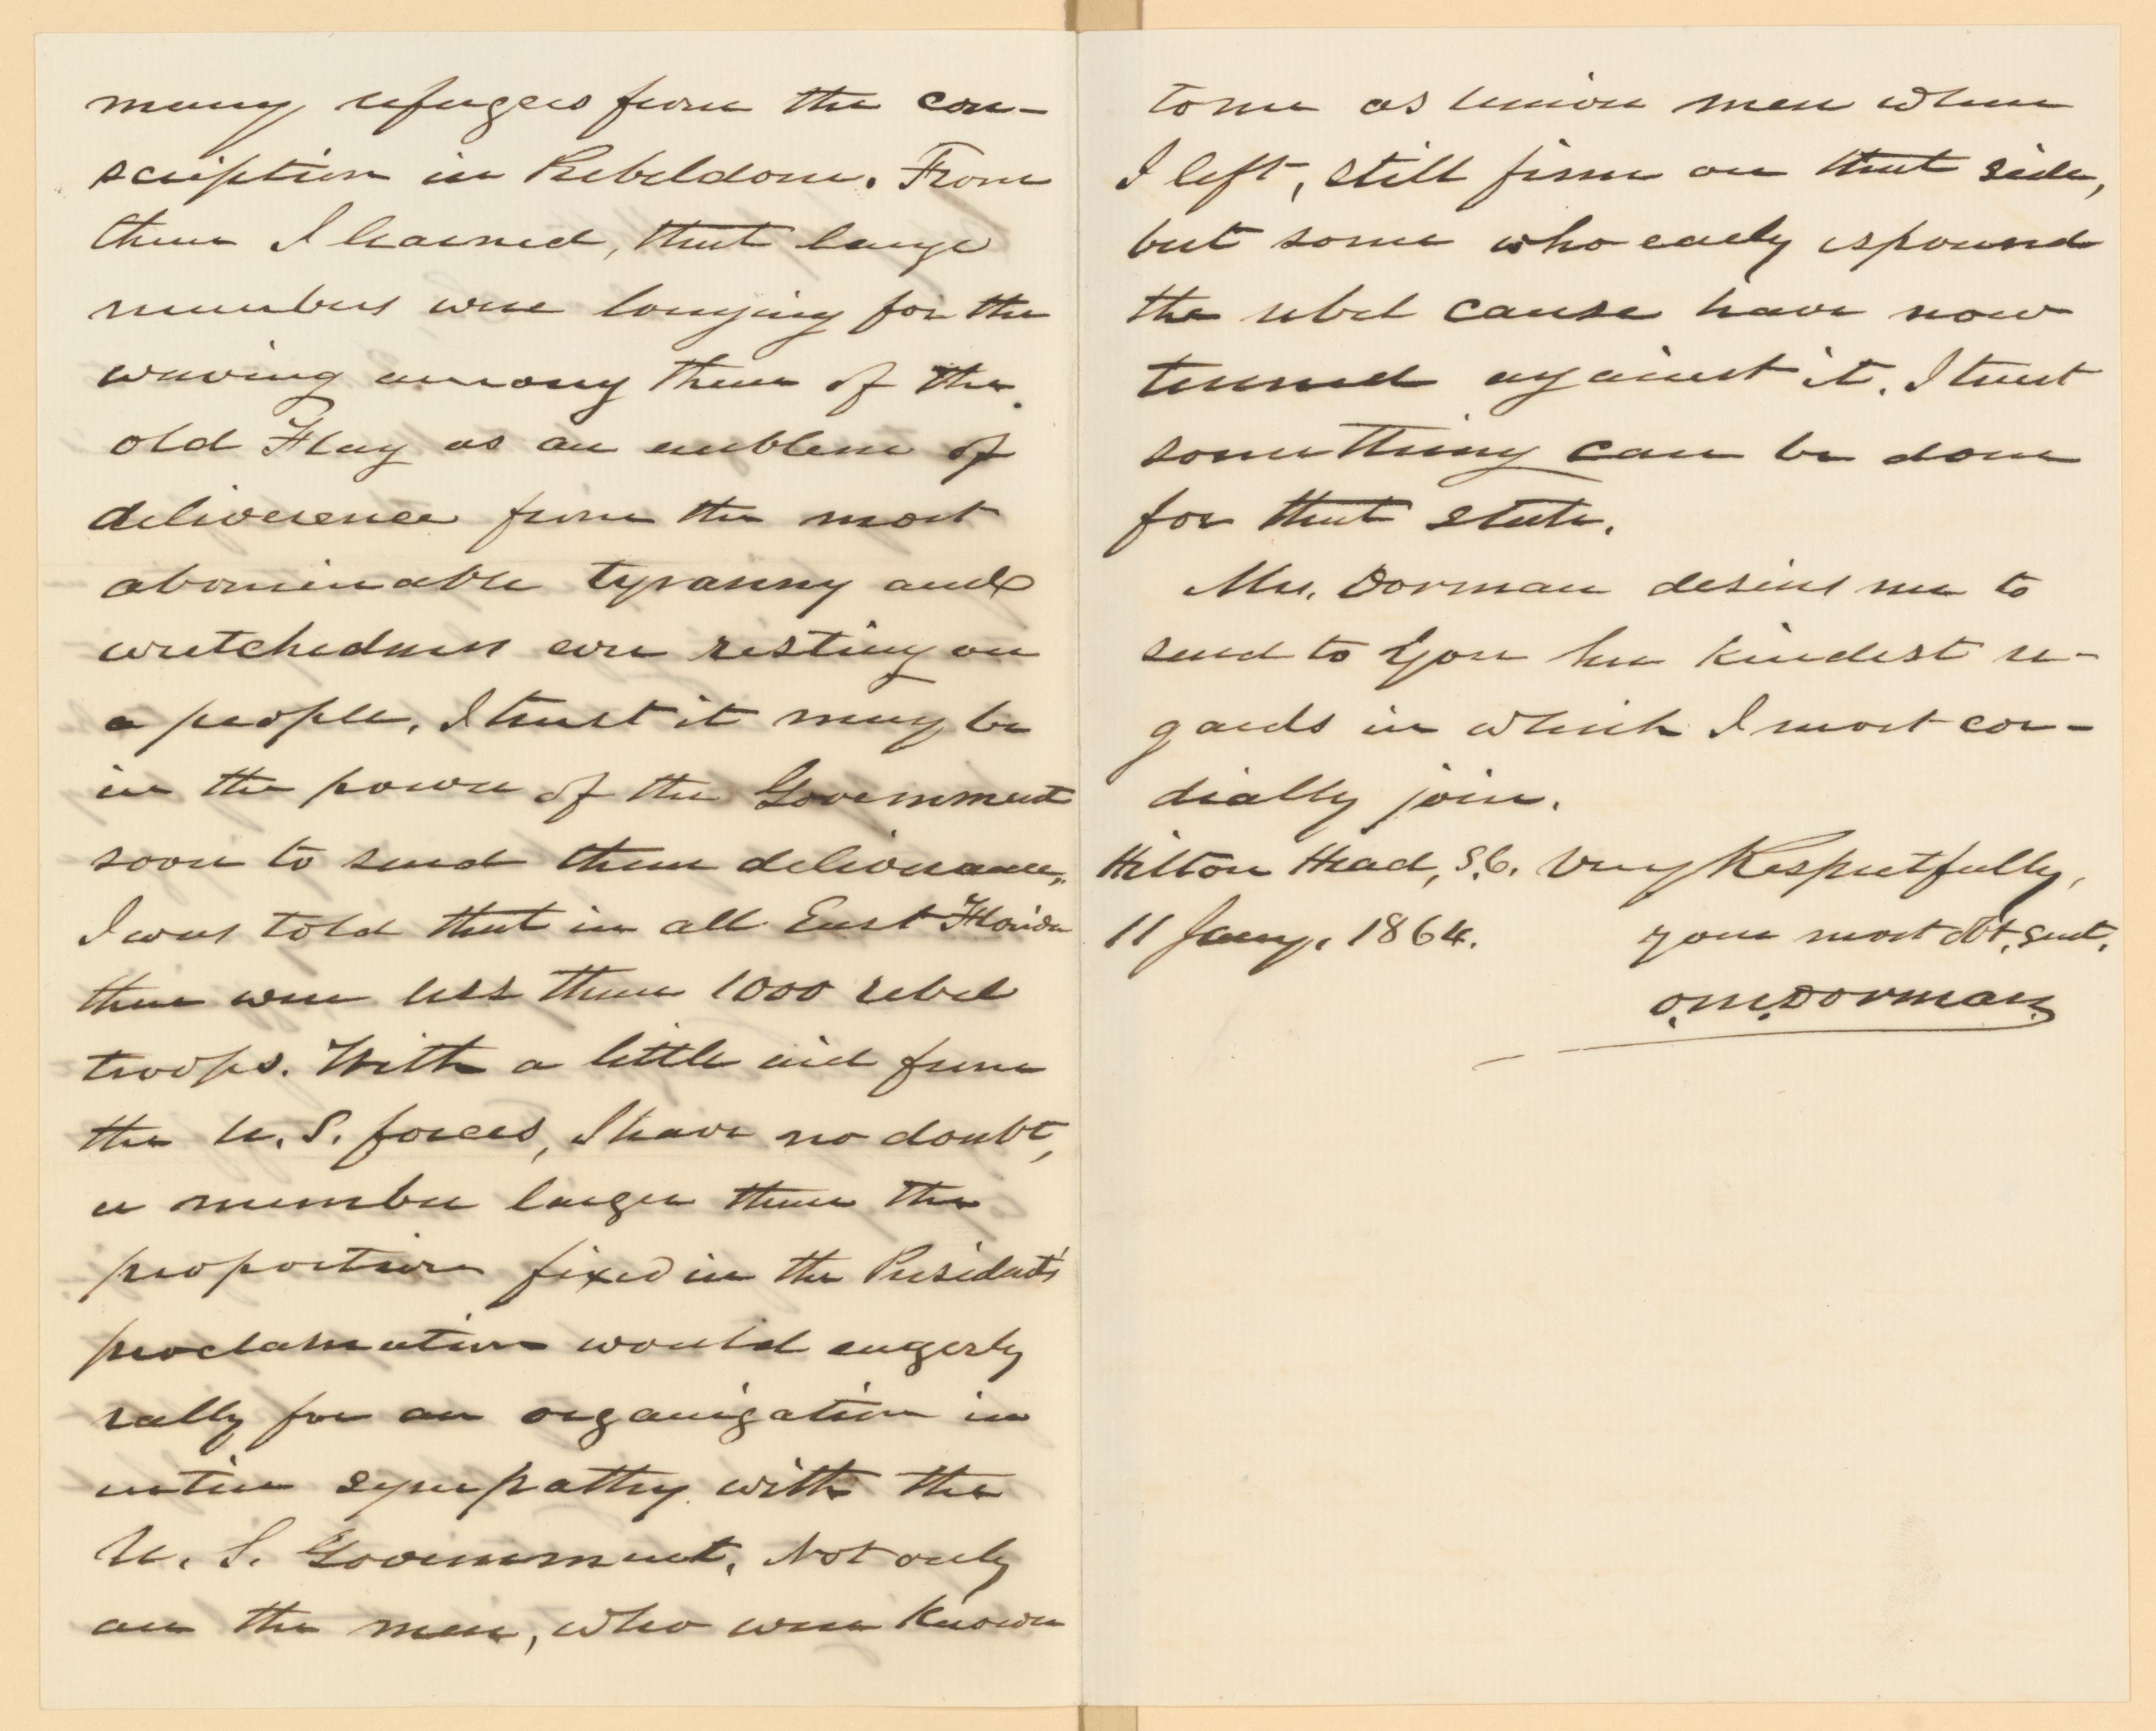 many refugees from the con-
scription in Rebeldom. From
them I learned, that large
numbers were longing for the
waving among them of the
old Flag as an emblem of
deliverence from the most
abominable tyranny and
wretchedness ever resting on
a people. I trust it may be
in the power of the Government
soon to send them deliverance.
I was told that in all East Florida
there were less than 1000 rebel
troops. With a little aid from
the U. S. forces, I have no doubt,
a number larger than the
proportion fixed in the President's
proclamation would eagerly
rally for an organization in
entire sympathy with the
U. S. Government. Not only
are the men, who were known
to me as Union men when
I left, still firm on that side,
but some who early espoused
the rebel cause have now
turned against it. I trust
something can be done
for that state.
Mrs. Dorman desires me to
send to you her kindest re-
gards in which I most cor-
dially join.
Hilton Head, S.C. Very Respectfully,
11 Jany. 1864. your most obt. servt.
O.M. Dorman